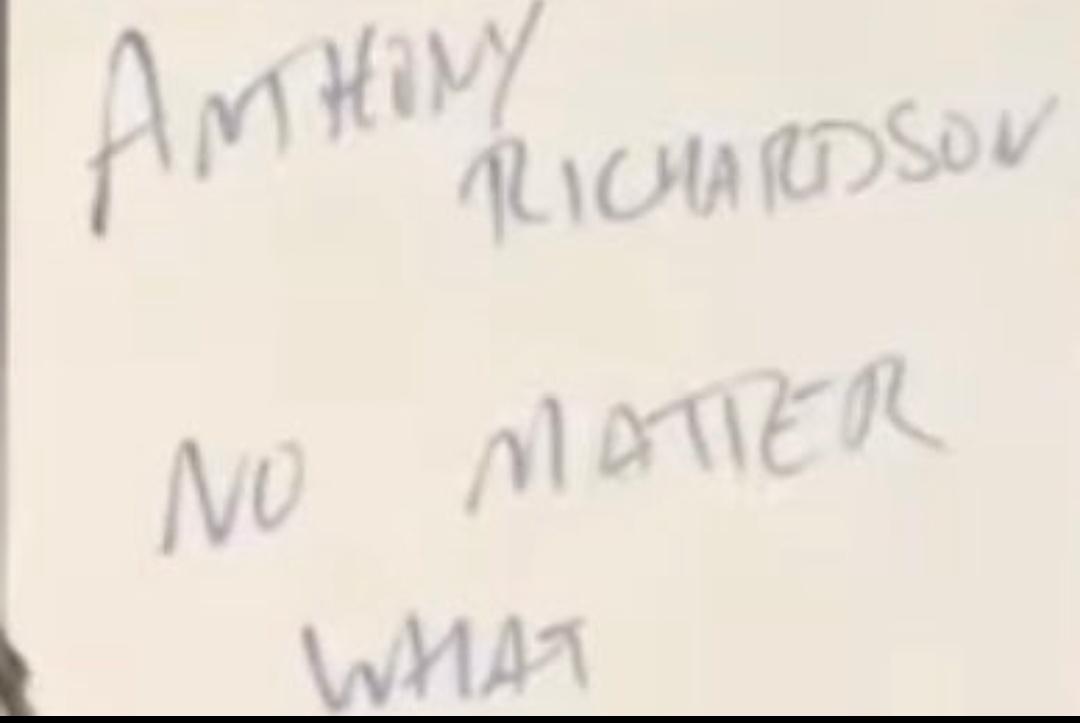 ANTHONY
RICHARDSON
NO MATTER
WHAT